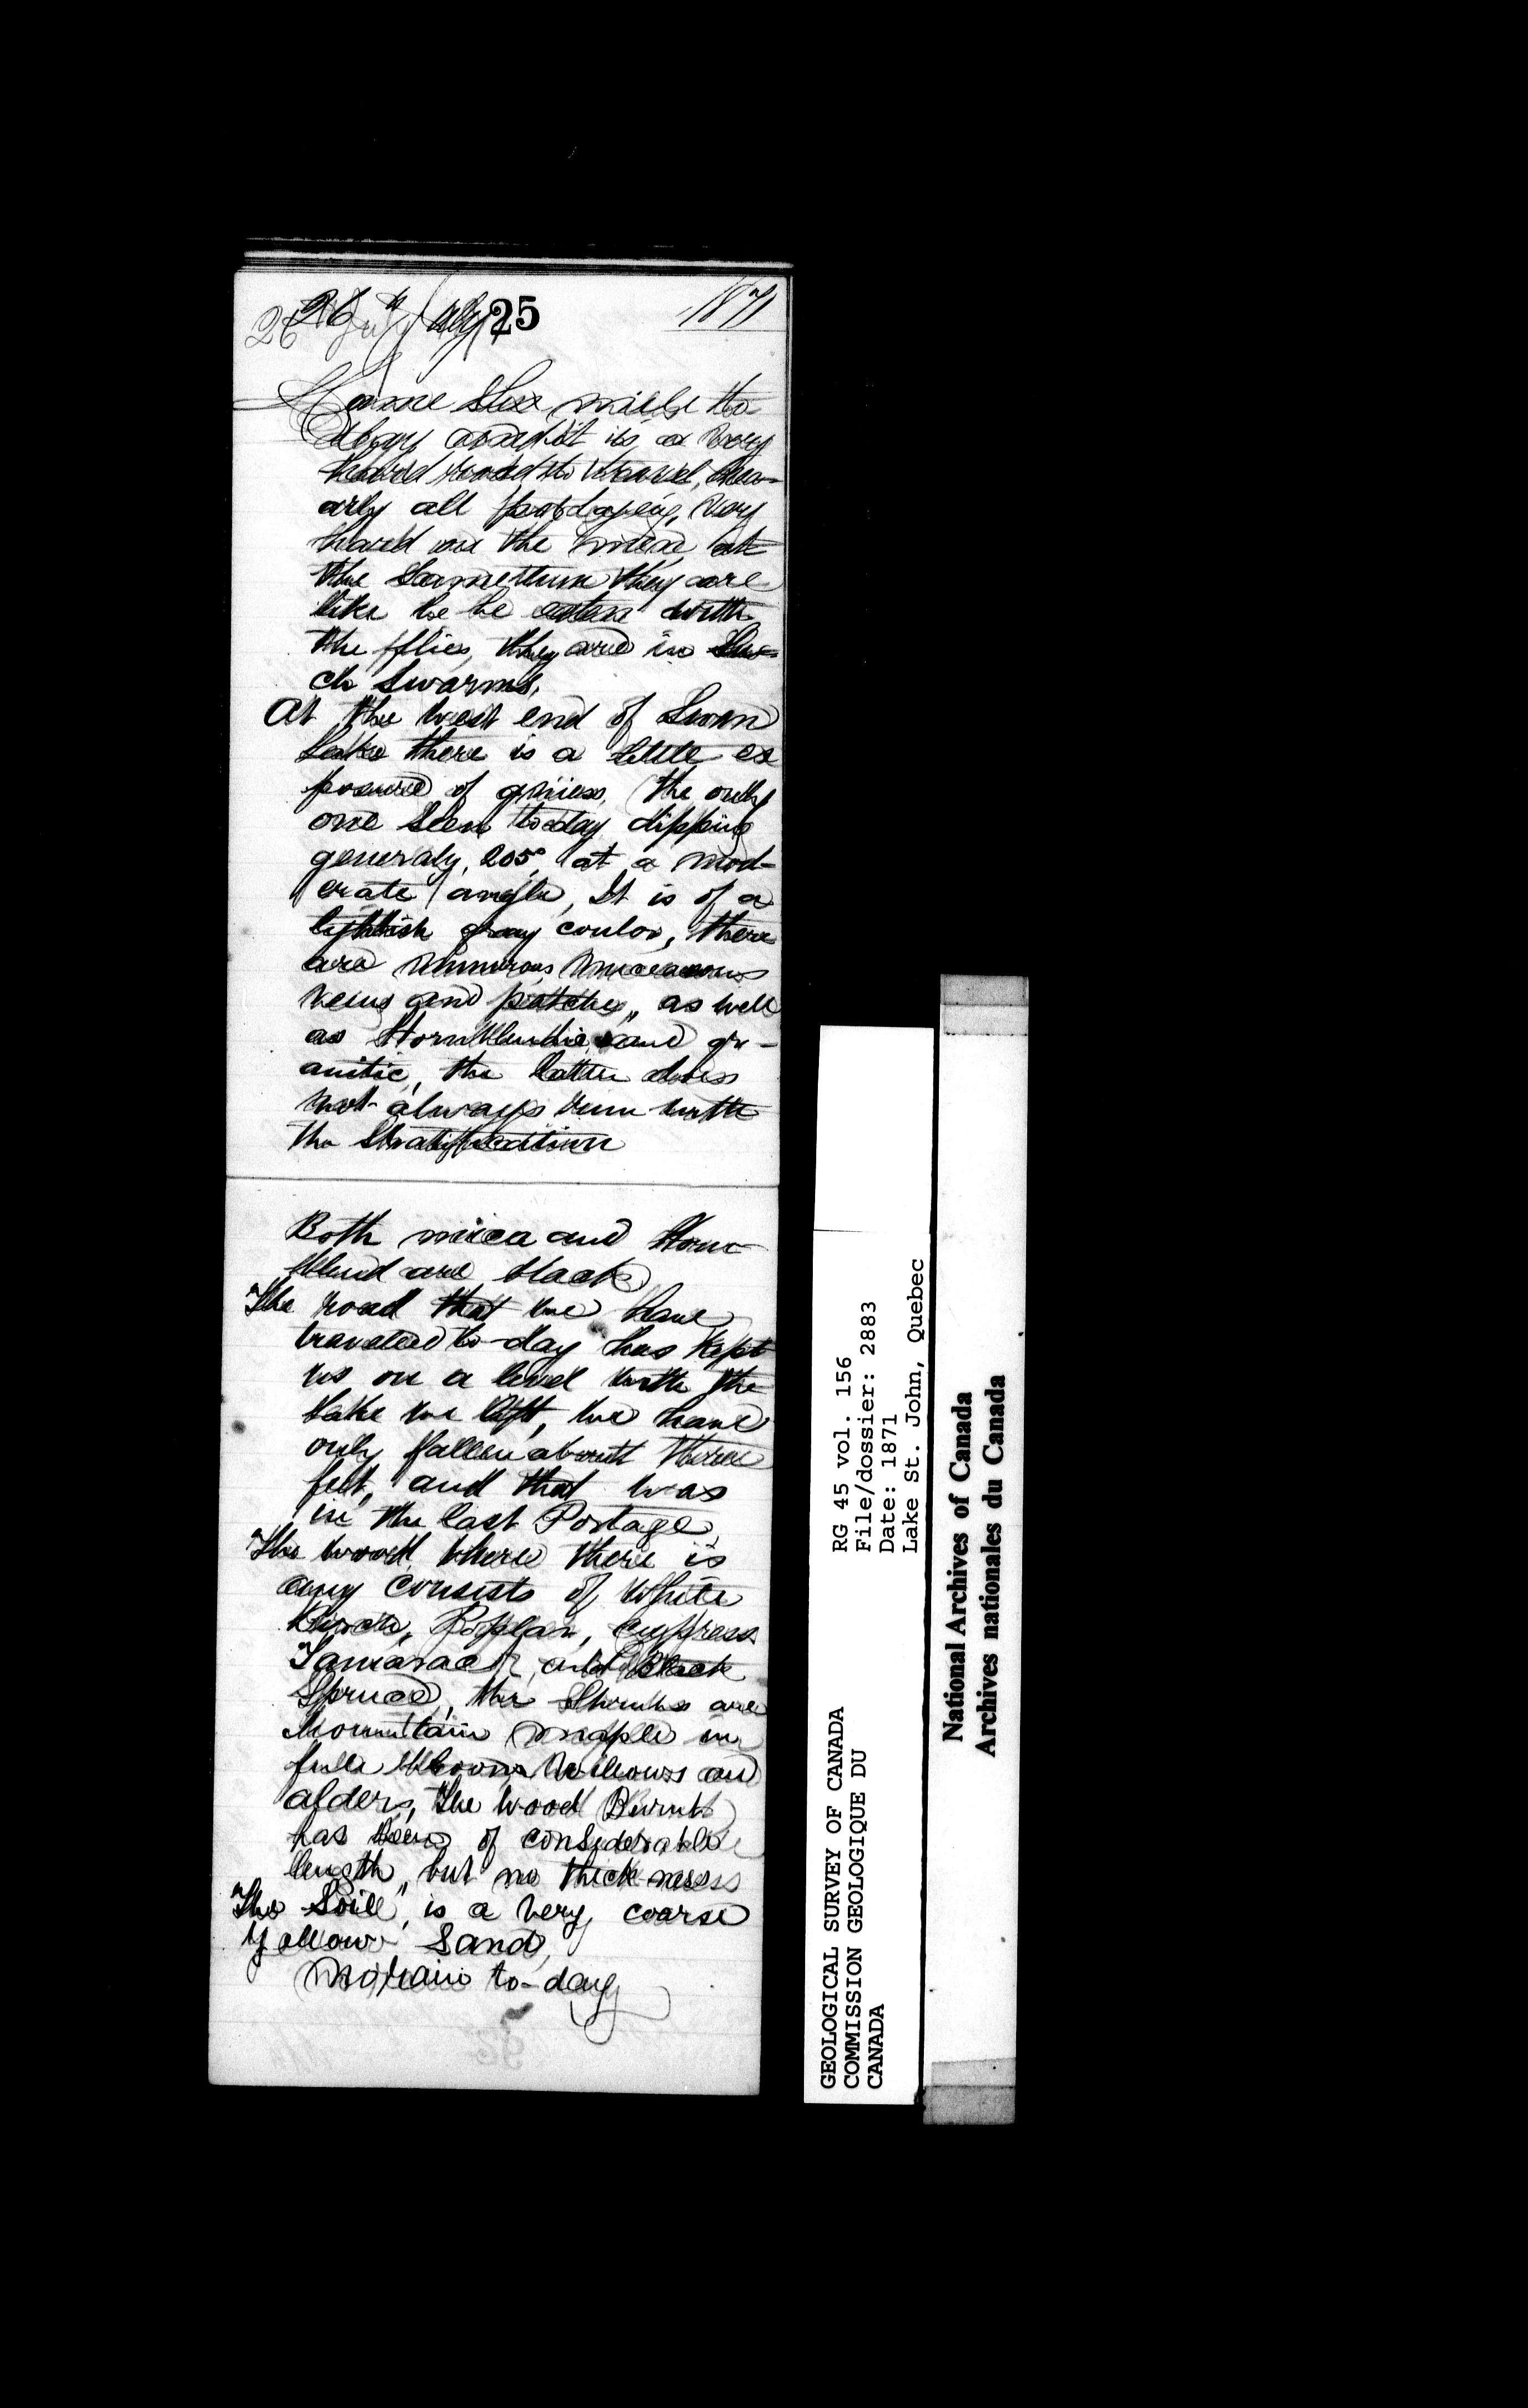 26th July 25 1871
Came six miles to
day and it is a very
hard road to travel, nea-
arly all portaging, Very
hard on the men, at
the same time they are
like to be eaten with
the flies, they are in su-
ch swarms.
At the west end of Swan
Lake there is a little ex
posure of gniess, the only
one seen to-day dipping
generaly, 205°, at a mod-
erate angle, It is of a
lightish gray coulor, there
are numerous micaceous
veins and patches, as well
as Hornblendic and gr-
anitic, the latter does
not always run with
the Stratification
Both mica and Horn
blend are black
The road that we have
traveled to-day has kept
us on a level with the
lake we left, we have
only fallen about three
feet, and that was
in the last Portage,
The wood where there is
any consists of White
birch, Poplar, cyprass
Tamarack, and Black
Spruce, the Shrubs are
Mountain maple in
full bloom Willows and
alders, the wood Burnt
has been of considerable
length, but no thick-ness
The Soill, is a very, coarse
Yellow Sand,
No rain to-day
GEOLOGICAL SURVEY OF CANADA
COMMISSION GEOLOGIQUE DU
CANADA
RG 45 vol. 156
File/dossier: 2883
Date: 1871
Lake St. John, Quebec
National Archives of Canada
Archives nationales du Canada